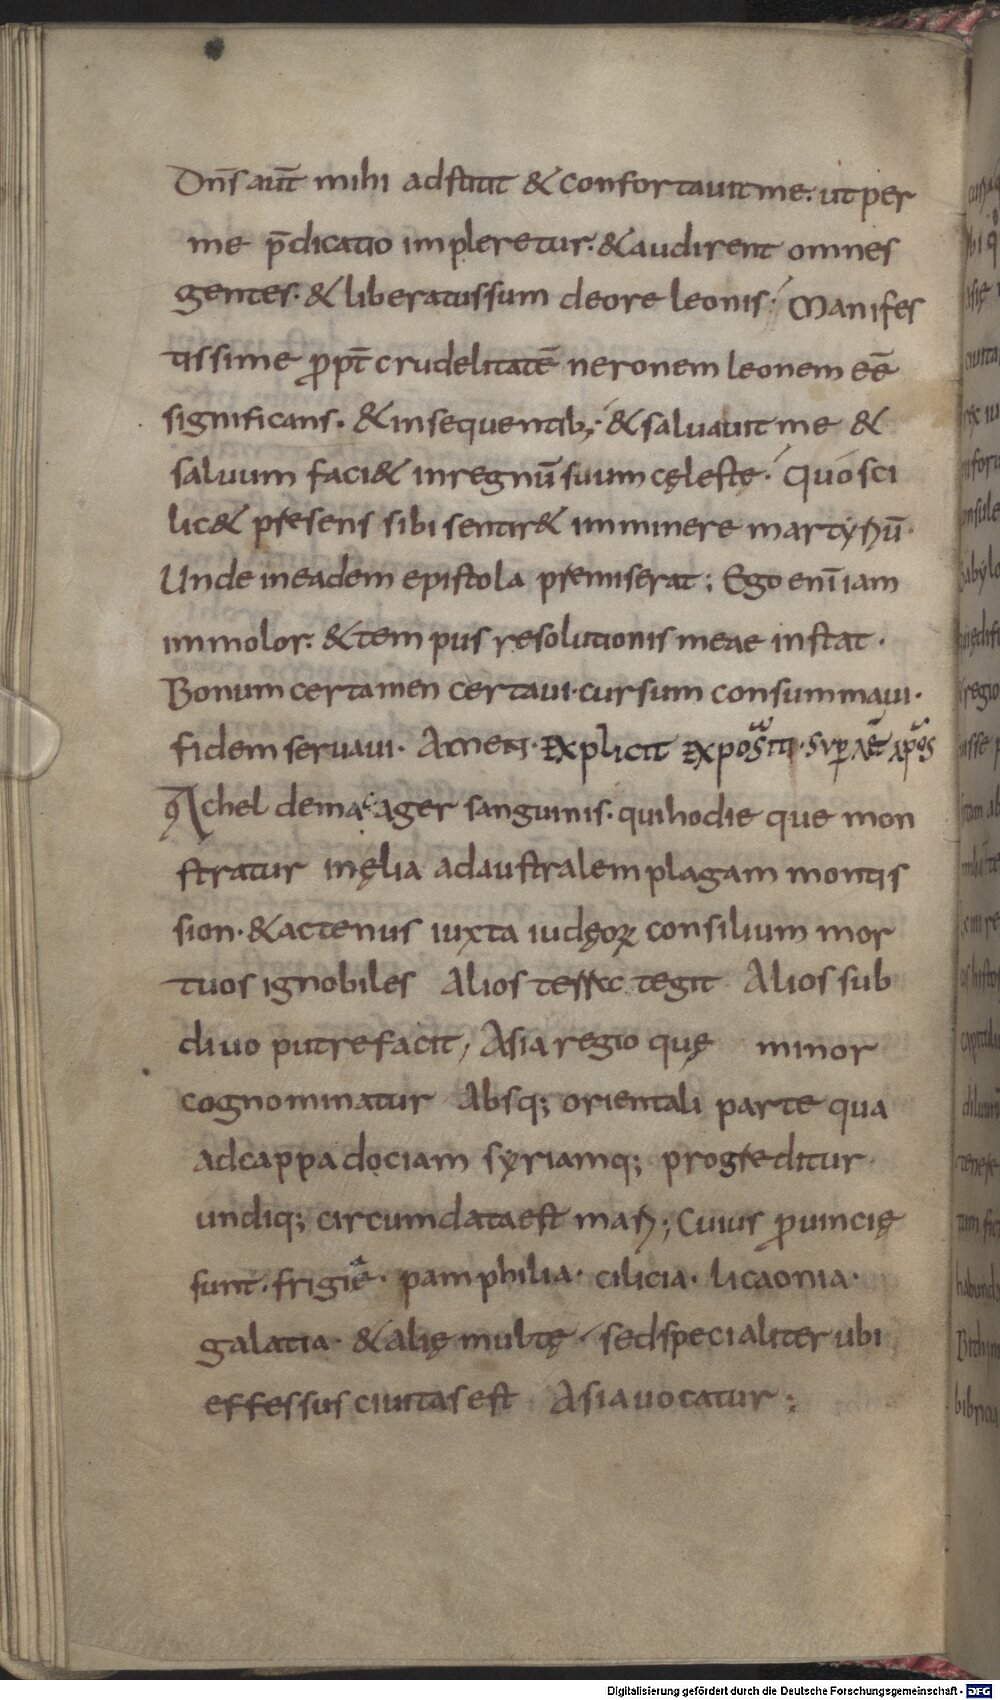 Dn̄s aūt mihi adstitit & confortauit me. ut per
me p̄dicatio impleretur. & audirent omnes
gentes. & liberatus sum de ore leonis. Manifes
tissime ꝓpt̄ crudelitatē neronem leonem eē̄
significans. & in sequentib; & saluauit me &
saluum faci& in regnū suum cęlestę. Quo sci
lic& presens sibi sentir& imminere martyriū.
Unde in eadem epistola premiserat; Ego enī iam
immolor. & tempus resolutionis meae instat.
Bonum certamen certaui. cursum consummaui.
fidem seruaui. Amen. Explicit
Achel dema ager sanguinis. qui hodie que mon
stratur in ęlia ad australem plagam montis
sion. & actenus iuxta iudęoꝝ consilium mor
tuos ignobiles Alios terrec tegit Alios sub
diuo putrefacit, Asia regio quę minor
cognominatur Absq; orientali parte qua
ad cappadociam syriamq; progreditur
undiq; circumdata est mari; Cuius ꝓuincię
sunt. frigia. pamphilia. cilicia. licaonia.
galatia. & alię multę. sed specialiter ubi
effessus ciuitas est Asia uocatur;
Digitalisierung gefördert durch die Deutsche Forschungsgemeinschaft - DFG